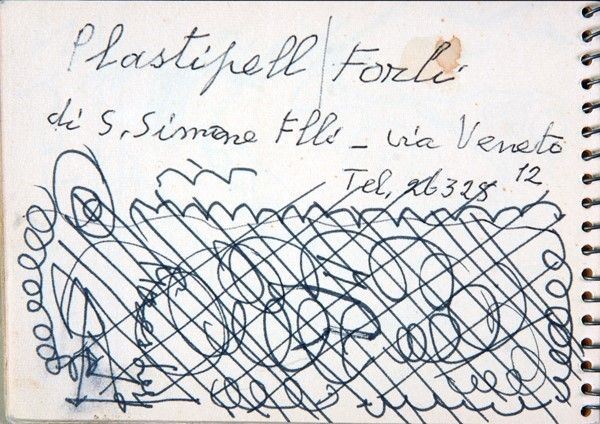 Plastipell / Forlì
di S. Simone F.lli - via Veneto
Tel. 26328 12